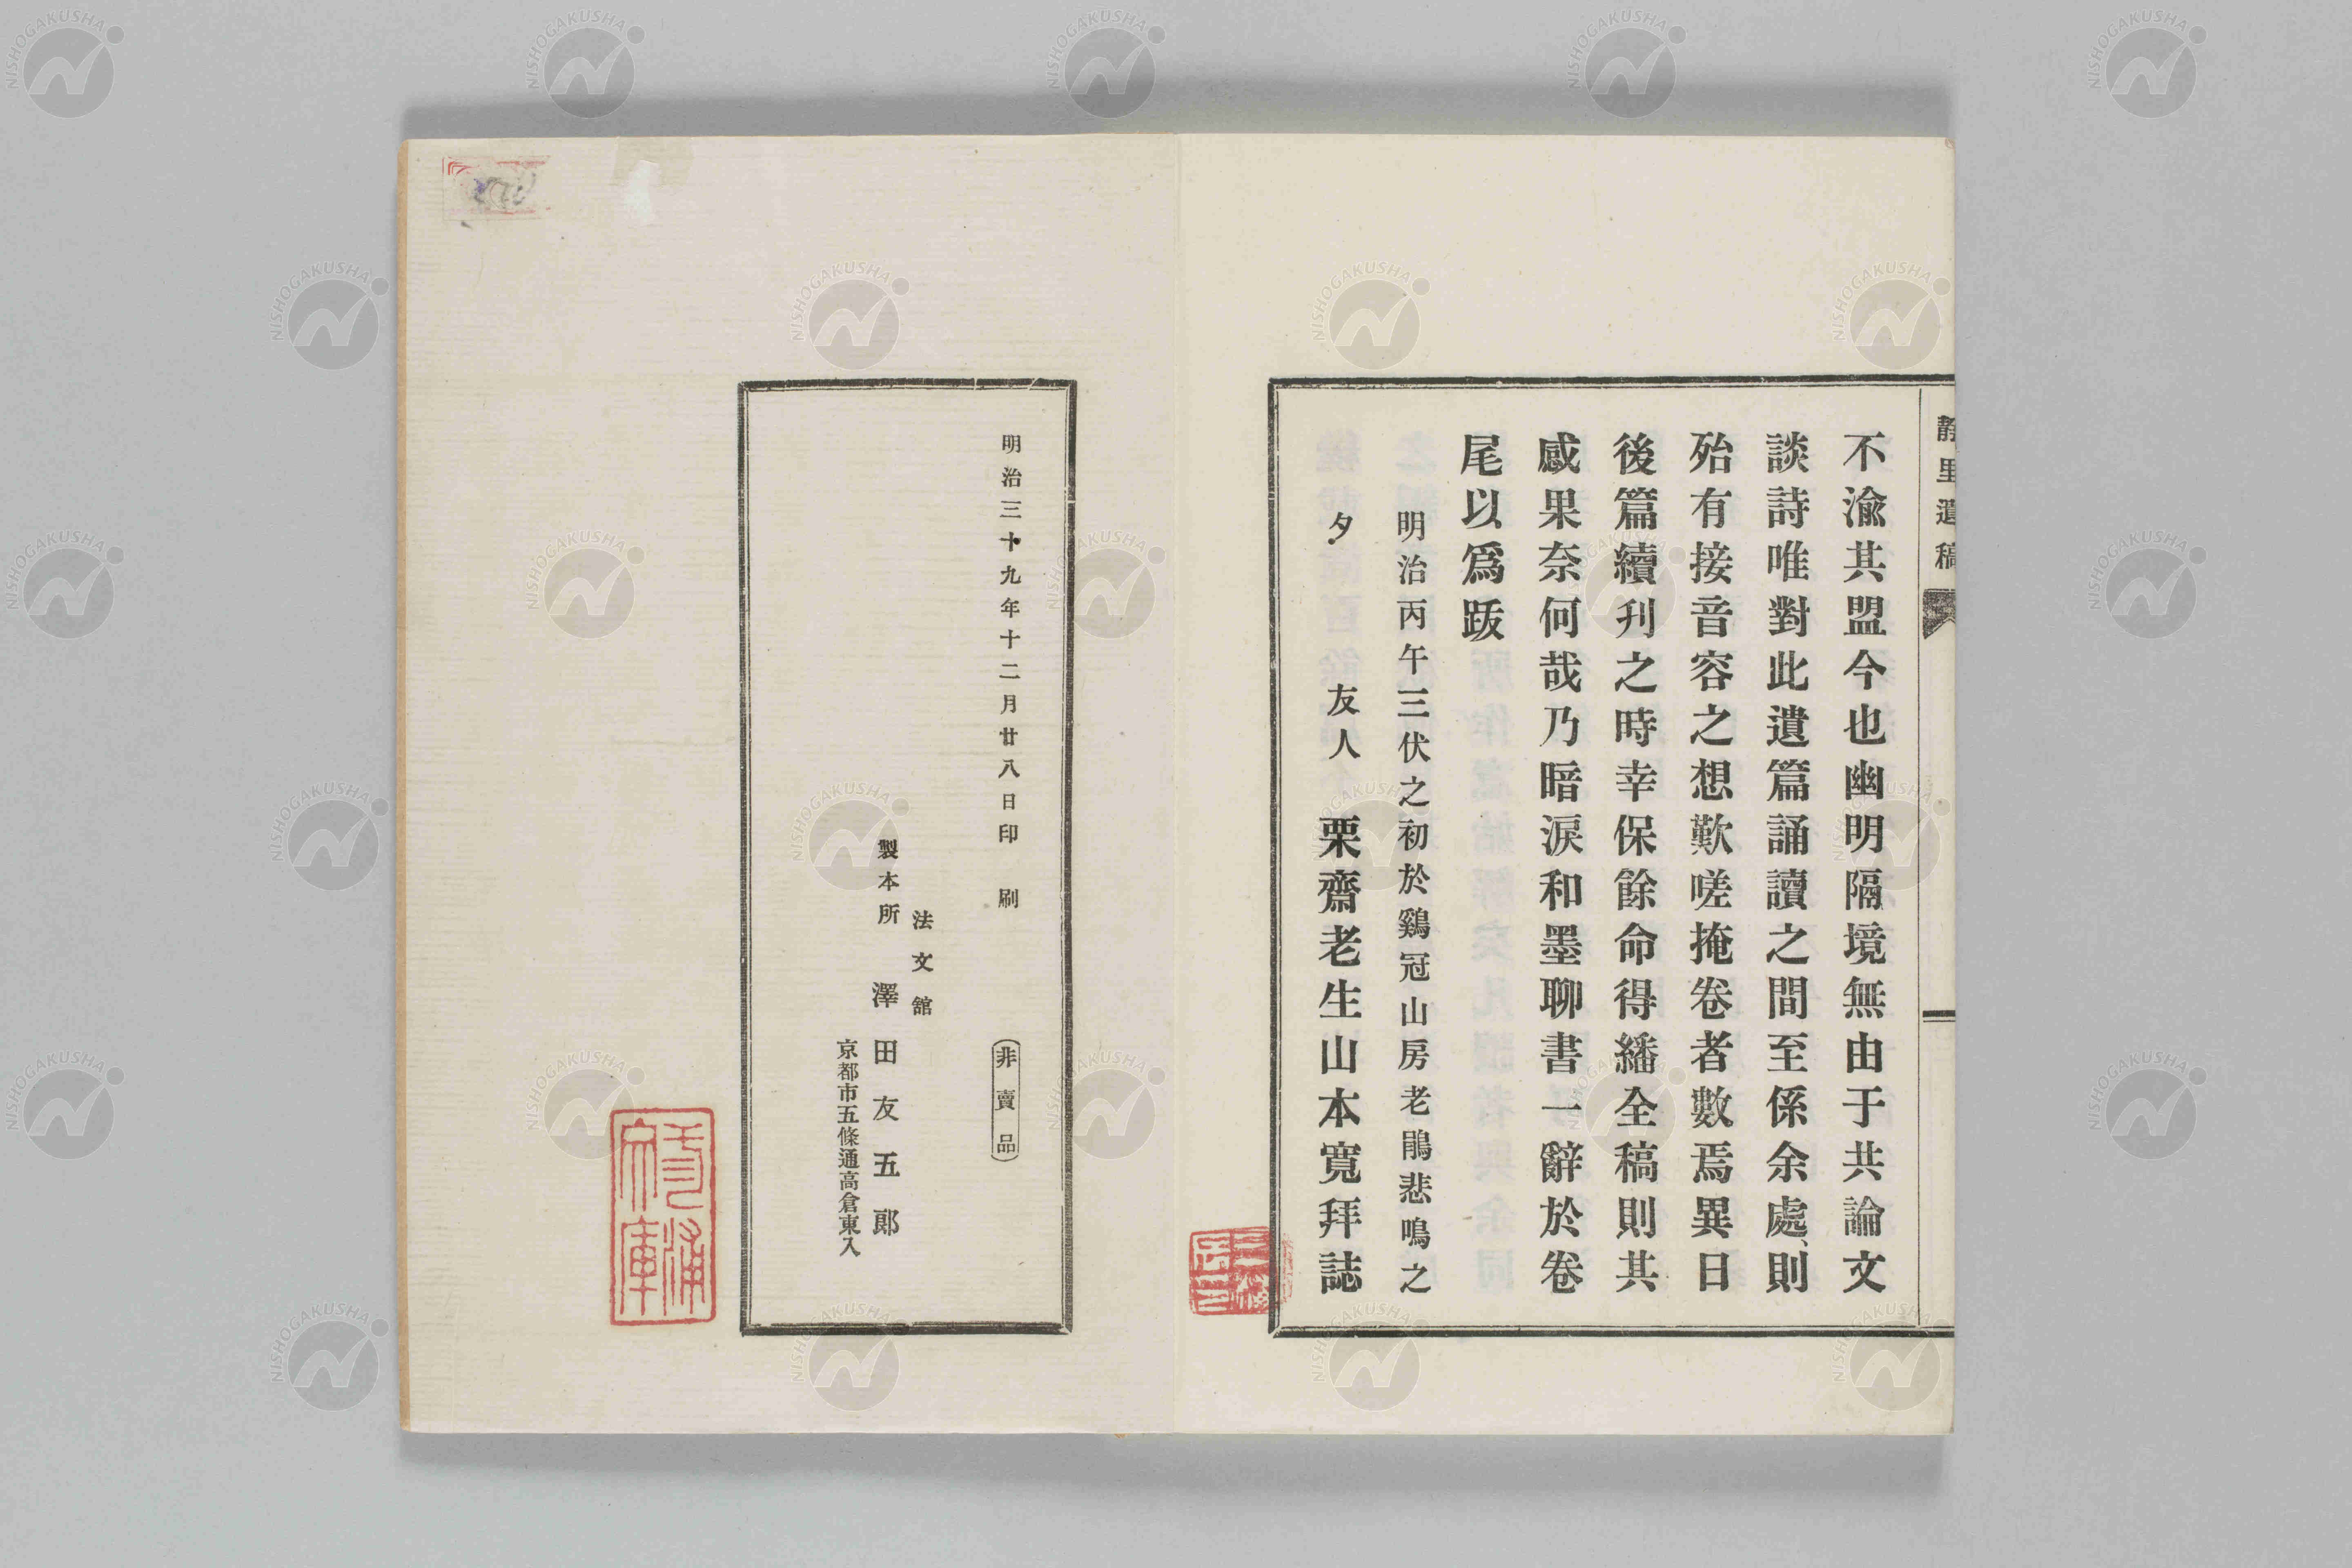 靜里遺稿
不渝其盟今也幽明隔境無由于共論文
談詩唯對此遺篇誦讀之間至係余處、則
殆有接音容之想歎嗟掩卷者數焉異日
後篇續刋之時幸保餘命得繙全稿則其
感果奈何哉乃暗淚和墨聊書一辭於卷
尾以爲跋
明治丙午三伏之初於鷄冠山房老鵑悲鳴之
夕　友人　栗齋老生山本寬拜誌
明治三十九年十二月廿八日印刷
（非賣品）
法文舘
製本所　澤田友五郎
京都市五條通高倉東入
文庫
NISHOGAKUSHA